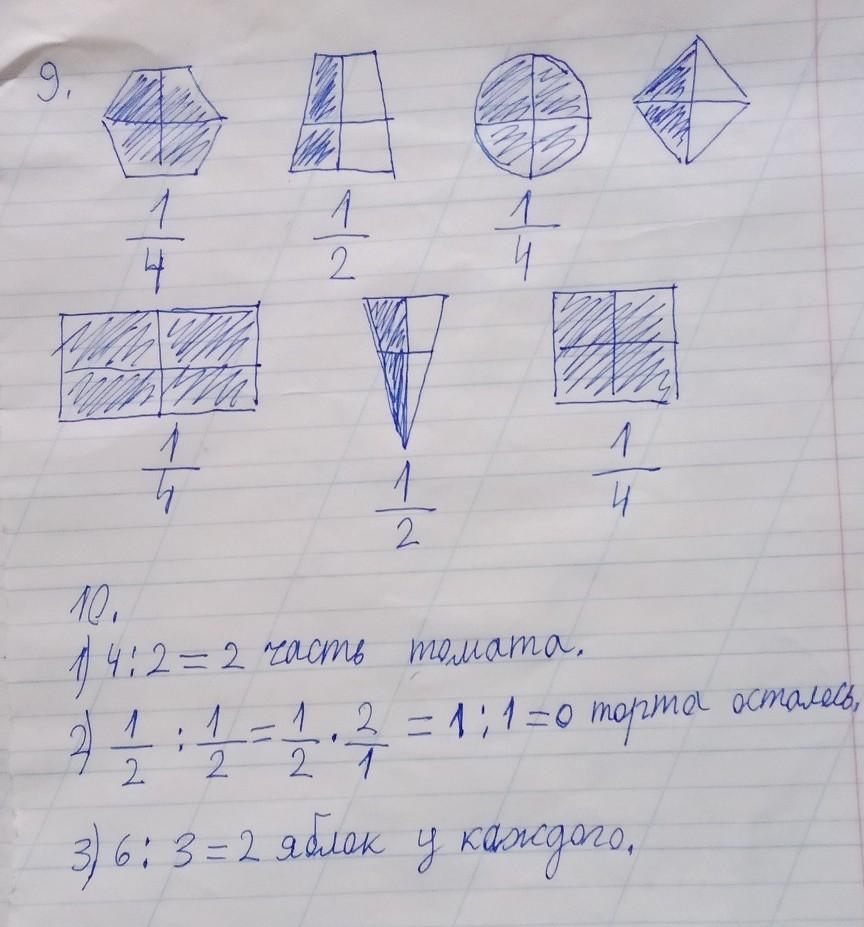 9.
1/4 1/2 1/4
1/4 1/2 1/4
10.
1) 4:2=2 часть томата.
2) 1/2 : 1/2 = 1/2 · 2/1 = 1:1=0 торта осталось,
3) 6:3=2 яблок у каждого.